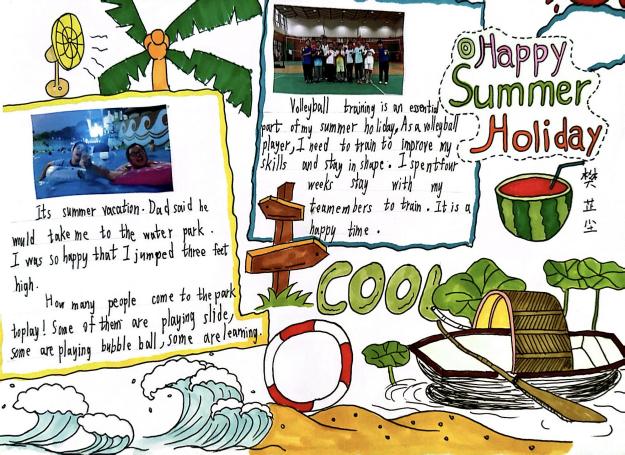 Happy
Summer
Holiday
樊
芷
尘
Its summer vacation. Dad said he
would take me to the water park.
I was so happy that I jumped three feet
high.
How many people come to the park
toplay! Some of them are playing slide,
some are playing bubble ball, some are learning.
Volleyball training is an essential
part of my summer holiday. As a volleyball
player, I need to train to improve my
skills and stay in shape. I spent four
weeks stay with my
teamembers to train. It is a
happy time.
COOL